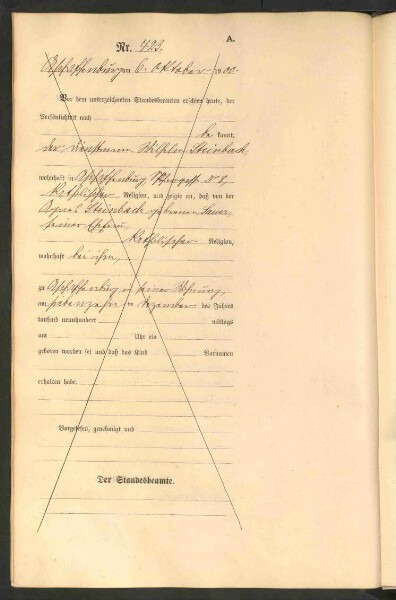 A.
Nr. 423.
Aschaffenburg am 6. Oktober 1900
Vor dem unterzeichneten Standesbeamten erschien heute, der
Persönlichkeit nach
be kannt,
der Dienstmann Wilhelm Steinbach,
wohnhaft in Aschaffenburg N 8,
katholischer Religion, und zeigte an, daß von der
Steinbach geborenen Sauer,
seiner Ehefrau,
katholischer Religion,
wohnhaft bei ihm,
zu Aschaffenburg in seiner Wohnung,
am siebenzehn ten Dezember des Jahres
tausend neunhundert mittags
um Uhr ein
geboren worden sei und daß das Kind Vornamen
erhalten habe.
Vorgelesen, genehmigt und
Der Standesbeamte.